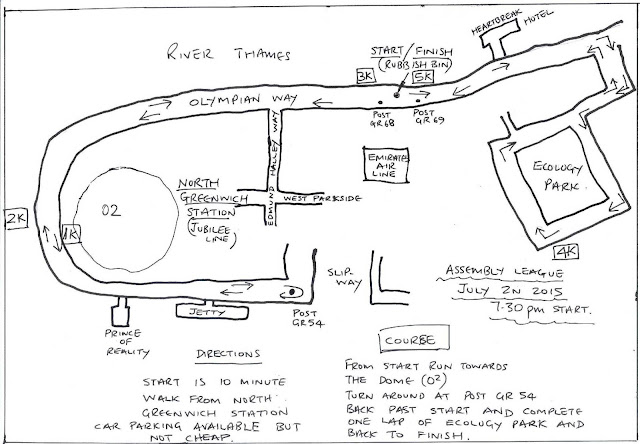 HEARTBREAK HOTEL
RIVER THAMES
START/FINISH
(RUBBISH BIN)
3K
5K
OLYMPIAN WAY
POST
GR68
POST
GR69
EDMUND HALLEY WAY
EMIRATE
AIR
LINE
ECOLOGY
PARK
NORTH
GREENWICH
STATION
(JUBILEE
LINE)
WEST PARKSIDE
02
2K
1K
4K
SLIP-
WAY
ASSEMBLY LEAGUE
JULY 2N 2015
7.30 PM START.
PRINCE
OF
REALITY
JETTY
POST
GR54
DIRECTIONS
START IS 10 MINUTE
WALK FROM NORTH
GREENWICH STATION
CAR PARKING AVAILABLE BUT
NOT CHEAP.
COURSE
FROM START RUN TOWARDS
THE DOME (O2)
TURN AROUND AT POST GR 54
BACK PAST START AND COMPLETE
ONE LAP OF ECOLOGY PARK AND
BACK TO FINISH.